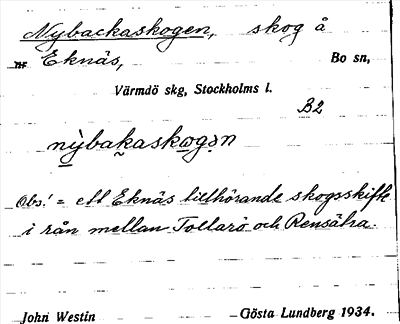 Nybackaskogen, skog å
nr Eknäs, Bo sn,
Värmdö skg, Stockholms l.
B2
nỳbakaskωgən
Obs! = ett Eknäs tillhörande skogsskifte
i rån mellan Tollarö och Rensätra.
John Westin Gösta Lundberg 1934.